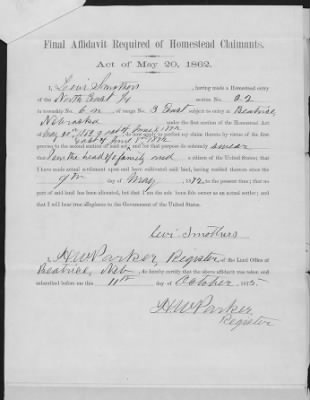 Final Affidavit Required of Homestead Claimants.
Act of May 20, 1862.
I, Levi Smothers, having made a Homestead entry
of the North East 1/4 section No. 32
in township No. 6 n of range No. 3 East subject to entry at Beatrice,
Nebraska under the first section of the Homestead Act
of May 20th 1862 & act of June 8 1872 do now apply to perfect my claim thereto by virtue of the first
proviso to the second section of said act; and for that purpose do solemnly swear
that I am the head of a family and a citizen of the United States; that I
have made actual settlement upon and have cultivated said land, having resided thereon since the
9th day of May, 1872 to the present time; that no
part of said land has been alienated, but that I am the sole bona fide owner as an actual settler; and
that I will bear true allegiance to the Government of the United States.
Levi Smothers
I, H W Parker, Register of the Land Office at
Beatrice, Neb, do hereby certify that the above affidavit was taken and
subscribed before me this 11th day of October 1875.
H W Parker
Register